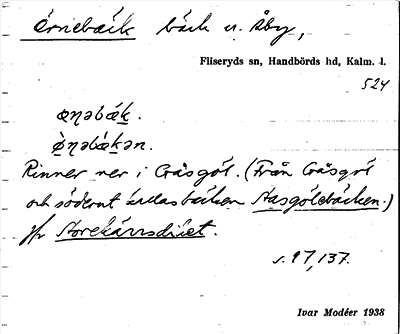 Örnebäck bäck n. Åby,
Fliseryds sn, Handbörds hd, Kalm. l.
524
œṇəbǽḵ.
ö̀ṇəbǽḵən.
Rinner ner i Gråsgöl. (Från Gråsgöl
och söderut kallas bäcken Aasgölebäcken.)
Jfr Storekärrsdiket.
s. 97, 137.
Ivar Modéer 1938